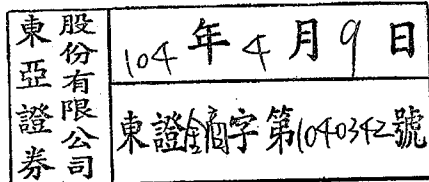 東亞證券
股份有限公司
104年4月9日
東證錧商字第1040342號